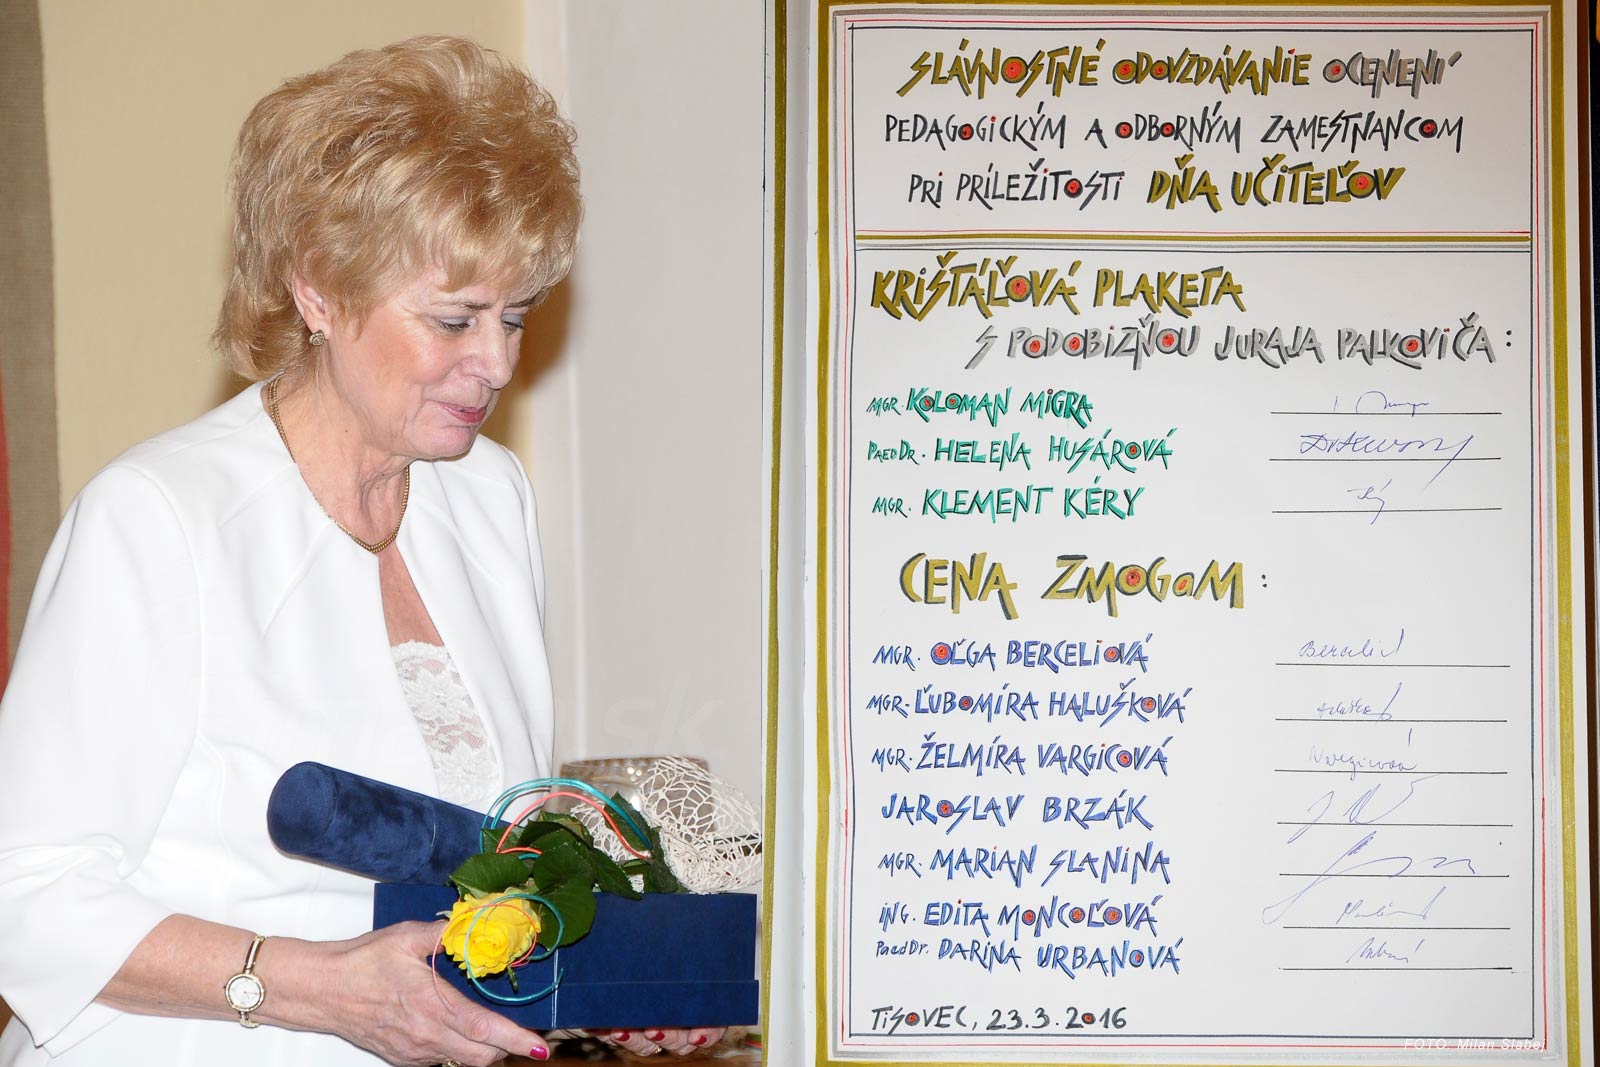 SLÁVNOSTNÉ ODOVZDÁVANIE OCENENÍ
PEDAGOGICKÝM A ODBORNÝM ZAMESTNANCOM
PRI PRÍLEŽITOSTI DŇA UČITEĽOV
KRIŠTÁĽOVÁ PLAKETA
S PODOBIZŇOU JURAJA PALKOVIČA:
MGR. KOLOMAN MIGRA
PaedDr. HELENA HUSÁROVÁ
MGR. KLEMENT KÉRY
CENA ZMOGaM:
MGR. OĽGA BERCELIOVÁ
MGR. ĽUBOMÍRA HALUŠKOVÁ
MGR. ŽELMÍRA VARGICOVÁ
Vargicová
JAROSLAV BRZÁK
MGR. MARIAN SLANINA
ING. EDITA MONCOĽOVÁ
PaedDr. DARINA URBANOVÁ
TISOVEC, 23.3.2016
FOTO: Milan Slabej